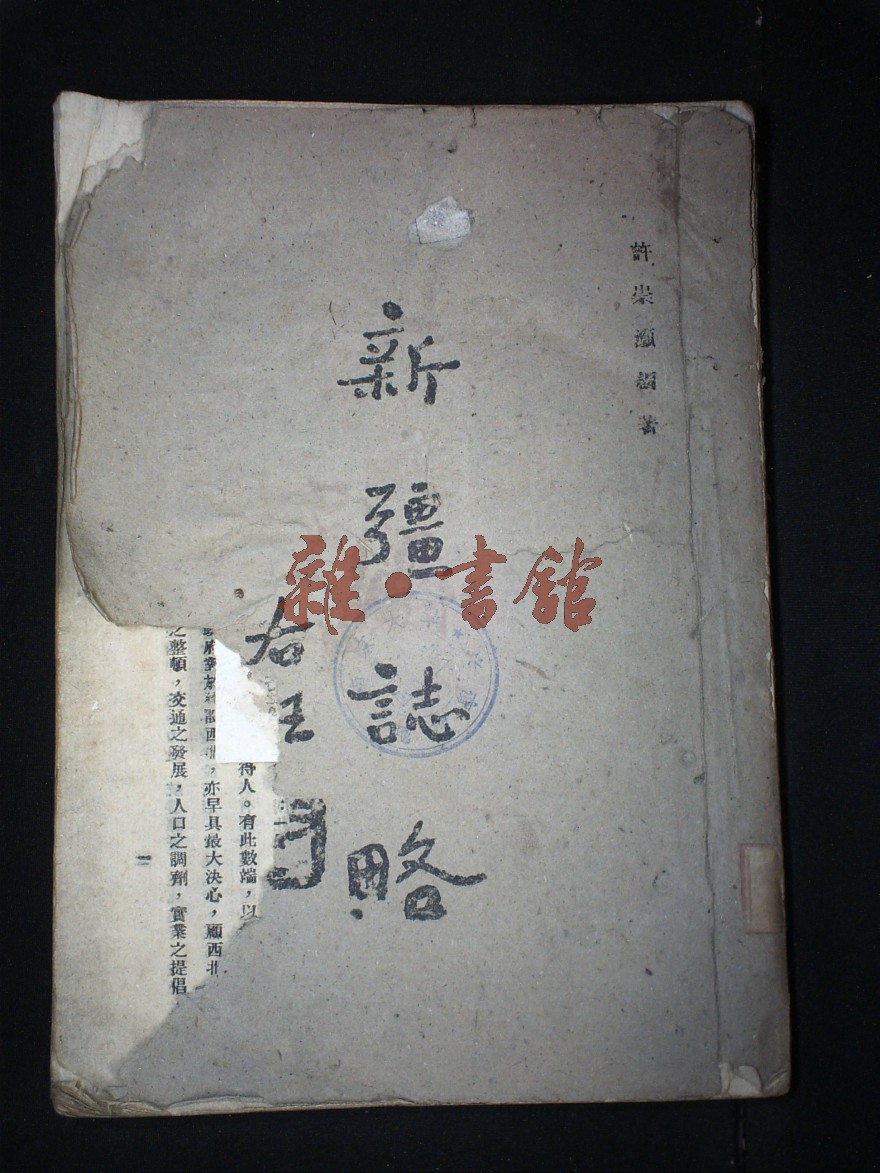 許崇灝編著
新疆誌略
右任
得人。有此數端，以
西北，亦早具最大決心，顧西北
之整頓，交通之發展，人口之調劑，實業之提倡
雜·書館